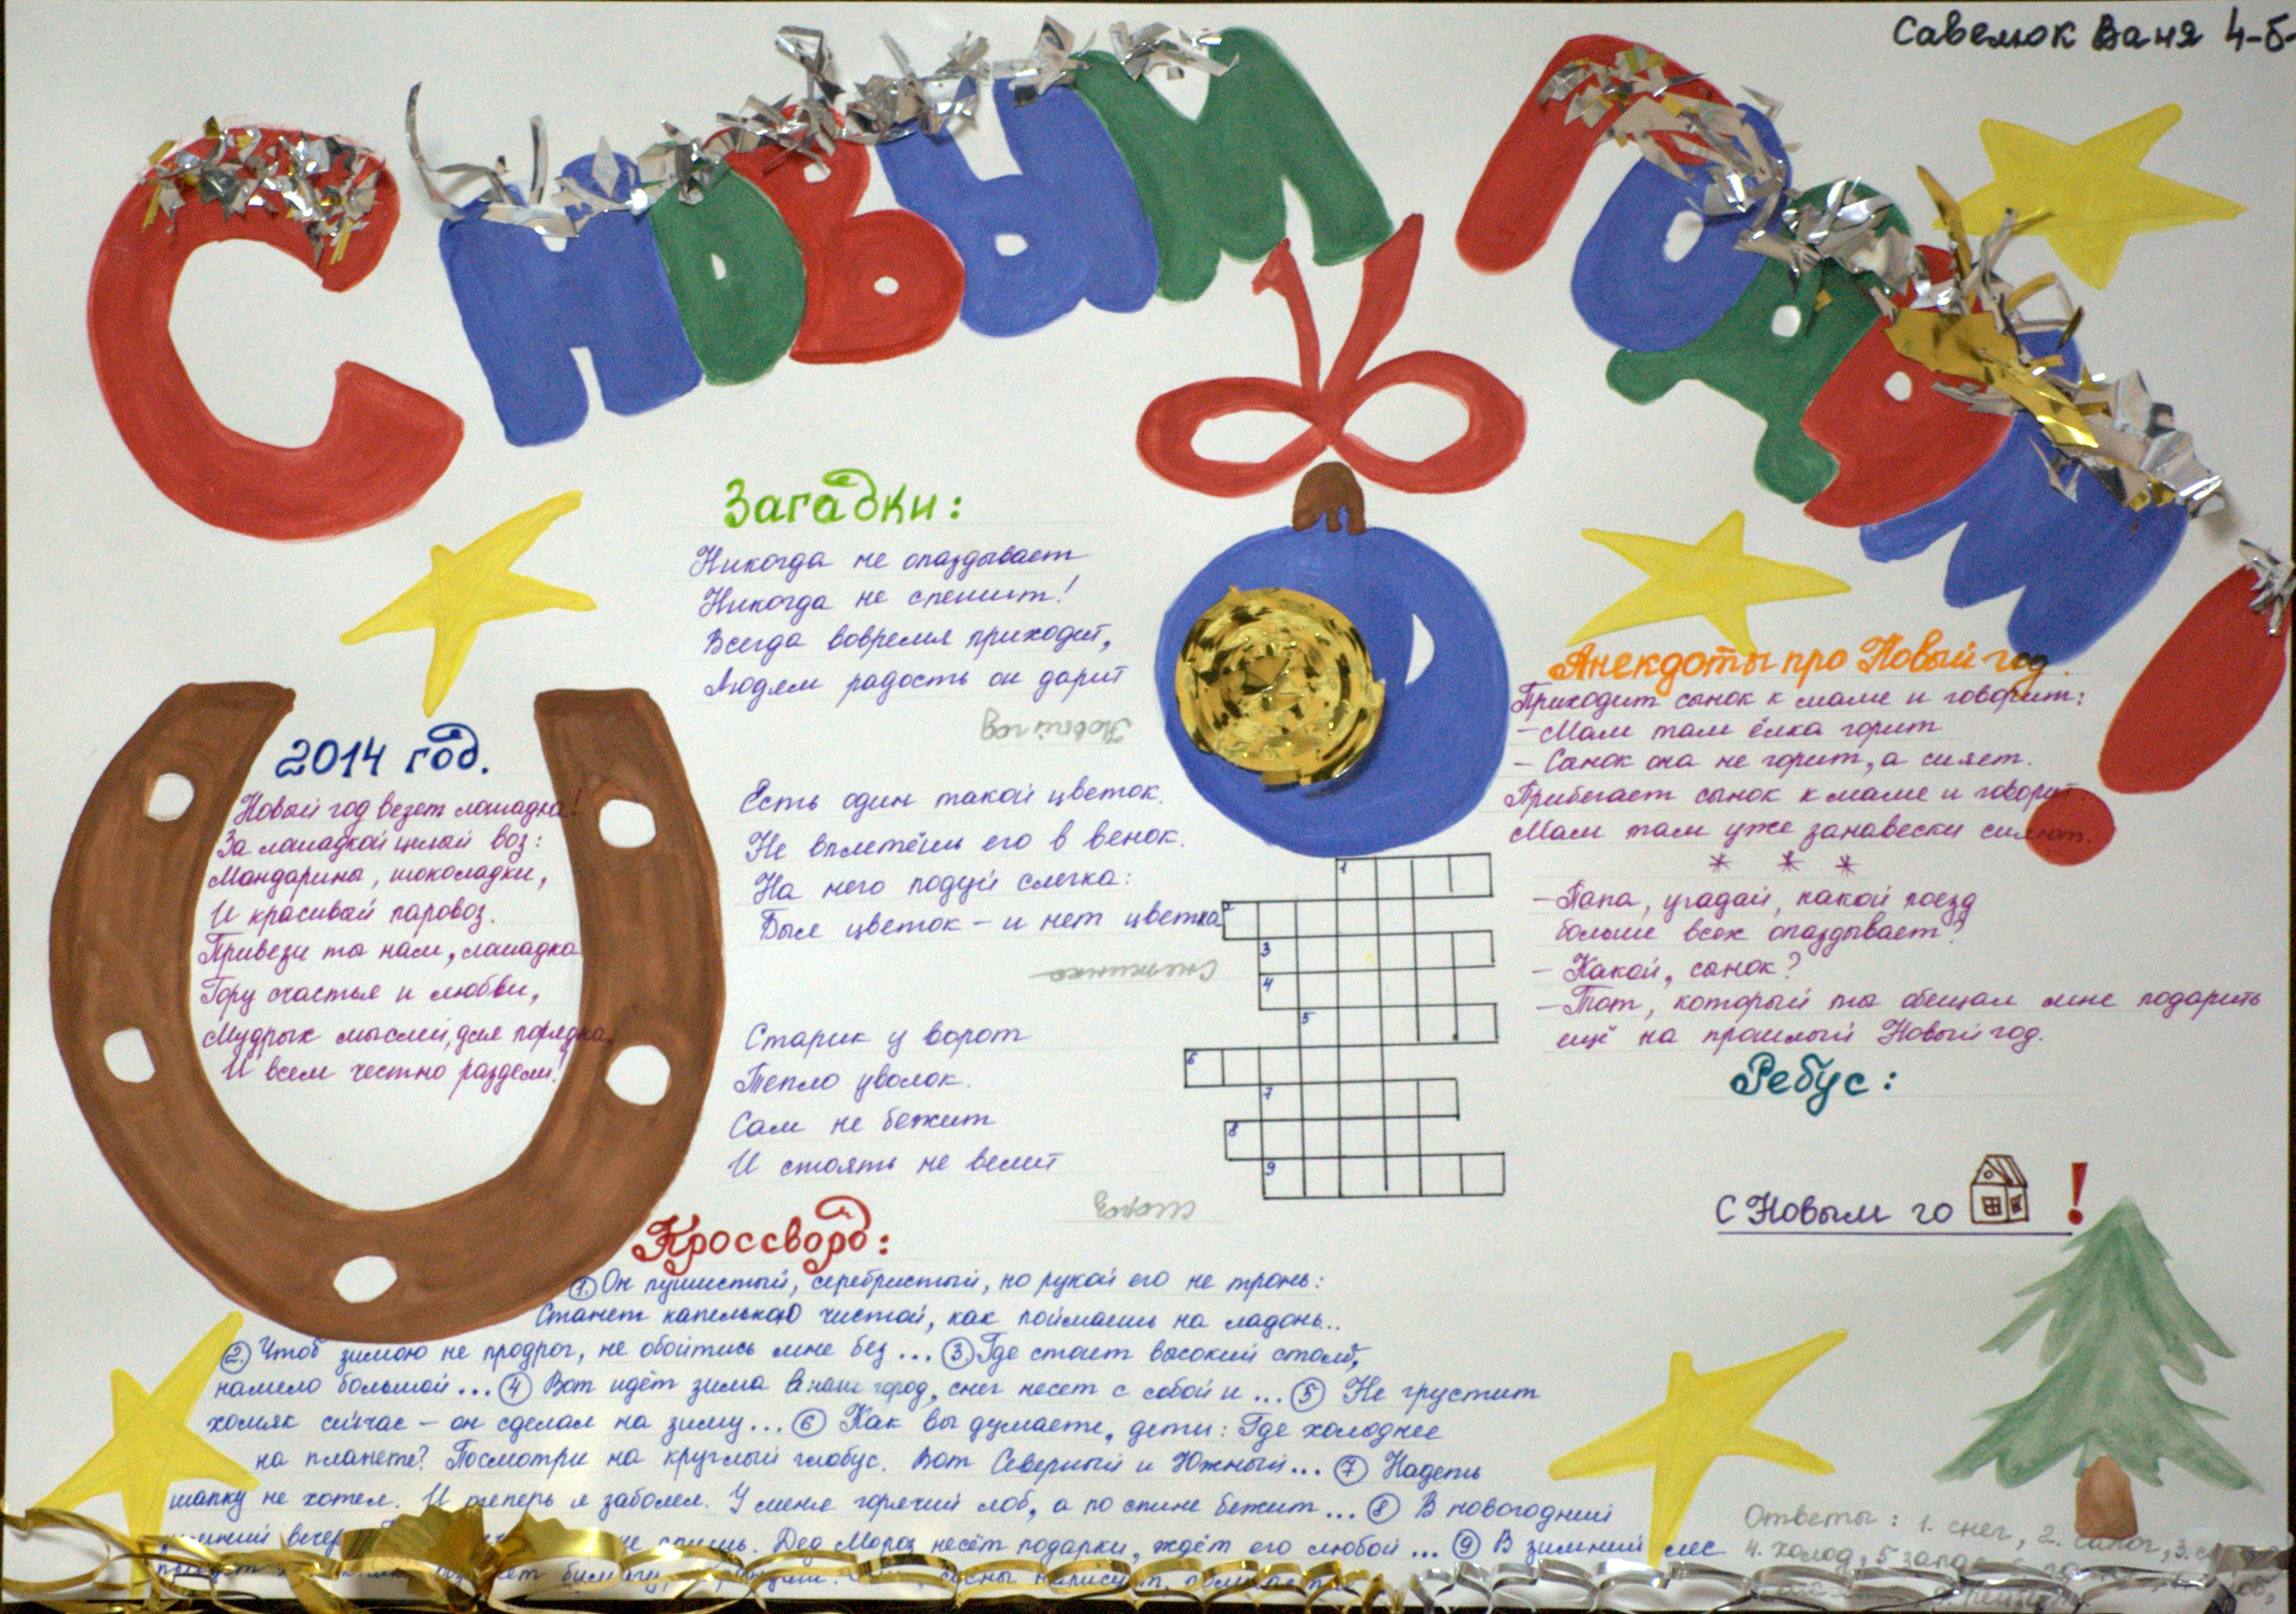 Савелюк Ваня 4-Б
С НОВЫМ ГОДОМ!
2014 год.
Новый год везет лошадка!
За лошадкой целый воз:
Мандарины, шоколадки,
И красивый паровоз.
Привези ты нам, лошадка
Гору счастья и любви,
Мудрых мыслей, для порядка,
И всем честно раздели!
Загадки:
Никогда не опаздывает
Никогда не спешит!
Всегда вовремя приходит,
Людям радость он дарит
Новый год
Есть один такой цветок.
Не вплетёшь его в венок.
На него подуй слегка:
Был цветок – и нет цветка.
Снежинка
Старик у ворот
Тепло уволок.
Сам не бежит
И стоять не велит
мороз
1
2
3
4
5
6
7
8
9
Анекдоты про Новый год.
Приходит сынок к маме и говорит:
– Мам там ёлка горит
– Сынок она не горит, а сияет.
Прибегает сынок к маме и говорит
Мам там уже занавески сияют.
* * *
– Папа, угадай, какой поезд
больше всех опаздывает?
– Какой, сынок?
– Тот, который ты обещал мне подарить
ещё на прошлый Новый год.
Ребус:
С Новым го !
Кроссворд:
1. Он пушистый, серебристый, но рукой его не тронь:
Станет капелькою чистой, как поймаешь на ладонь..
2. Чтоб зимою не продрог, не обойтись мне без ... 3. Где стоит высокий столб,
намело большой ... 4 Вот идёт зима в наш город, снег несет с собой и ... 5 Не грустит
хомяк сейчас – он сделал на зиму ... 6 Как вы думаете, дети: Где холоднее
на планете? Посмотри на круглый глобус. Вот Северный и Южный ... 7 Надеть
шапку не хотел. И теперь я заболел. У меня горячий лоб, а по спине бежит ... 8 В новогодний
вечер не спишь. Дед Мороз несёт подарки, ждёт его любой ... 9 В зимний лес
сосны
Ответы: 1. снег, 2. сапог, 3.
4. холод, 5